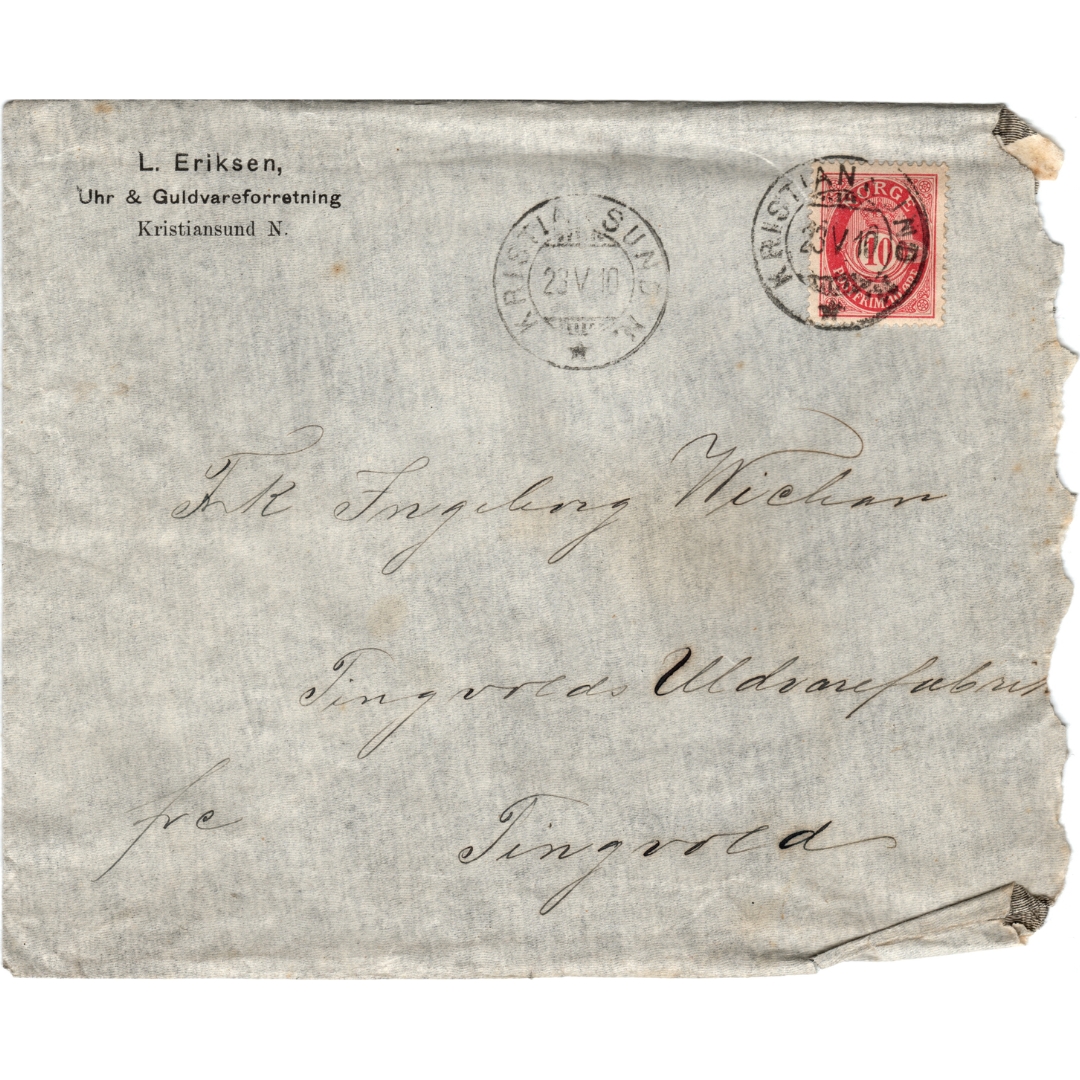 L. Eriksen,
Uhr & Guldvareforretning
Kristiansund N.
KRISTIANSUND N.
23 V 10
KRISTIAN ND
23 V 10
NORGE
10
POSTFRIM.
Frk Ingeborg Wichan
Tingvolds Uldvarefabrik
frc
Tingvold